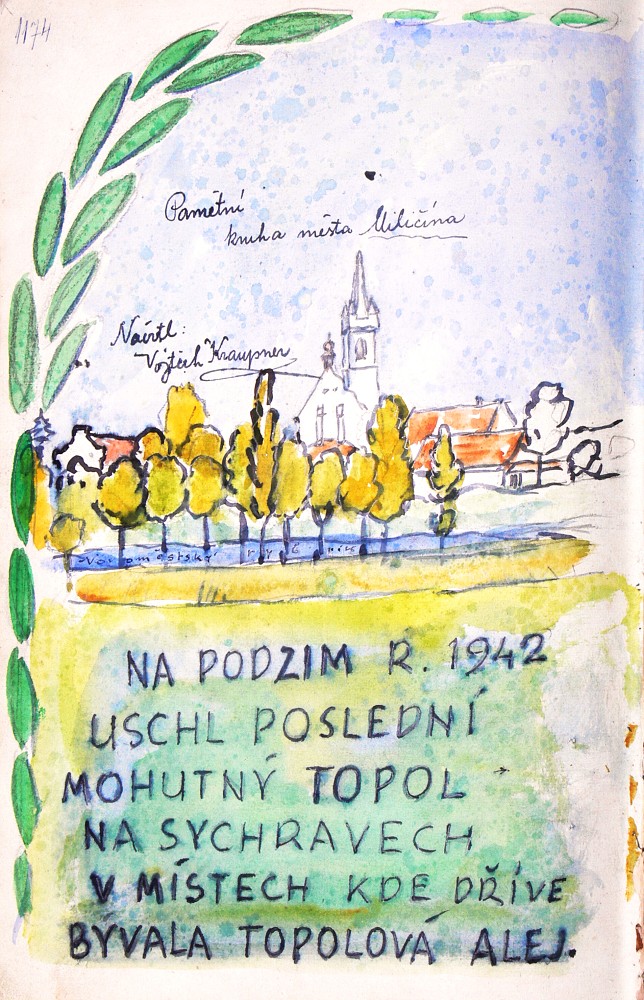 1174
Pamětní
kniha města Miličína
Návrtl:
Vojtěch Kraupner
NA PODZIM R. 1942
USCHL POSLEDNÍ
MOHUTNÝ TOPOL
NA SYCHRAVECH
V MÍSTECH KDE DŘÍVE
BÝVALA TOPOLOVÁ ALEJ.